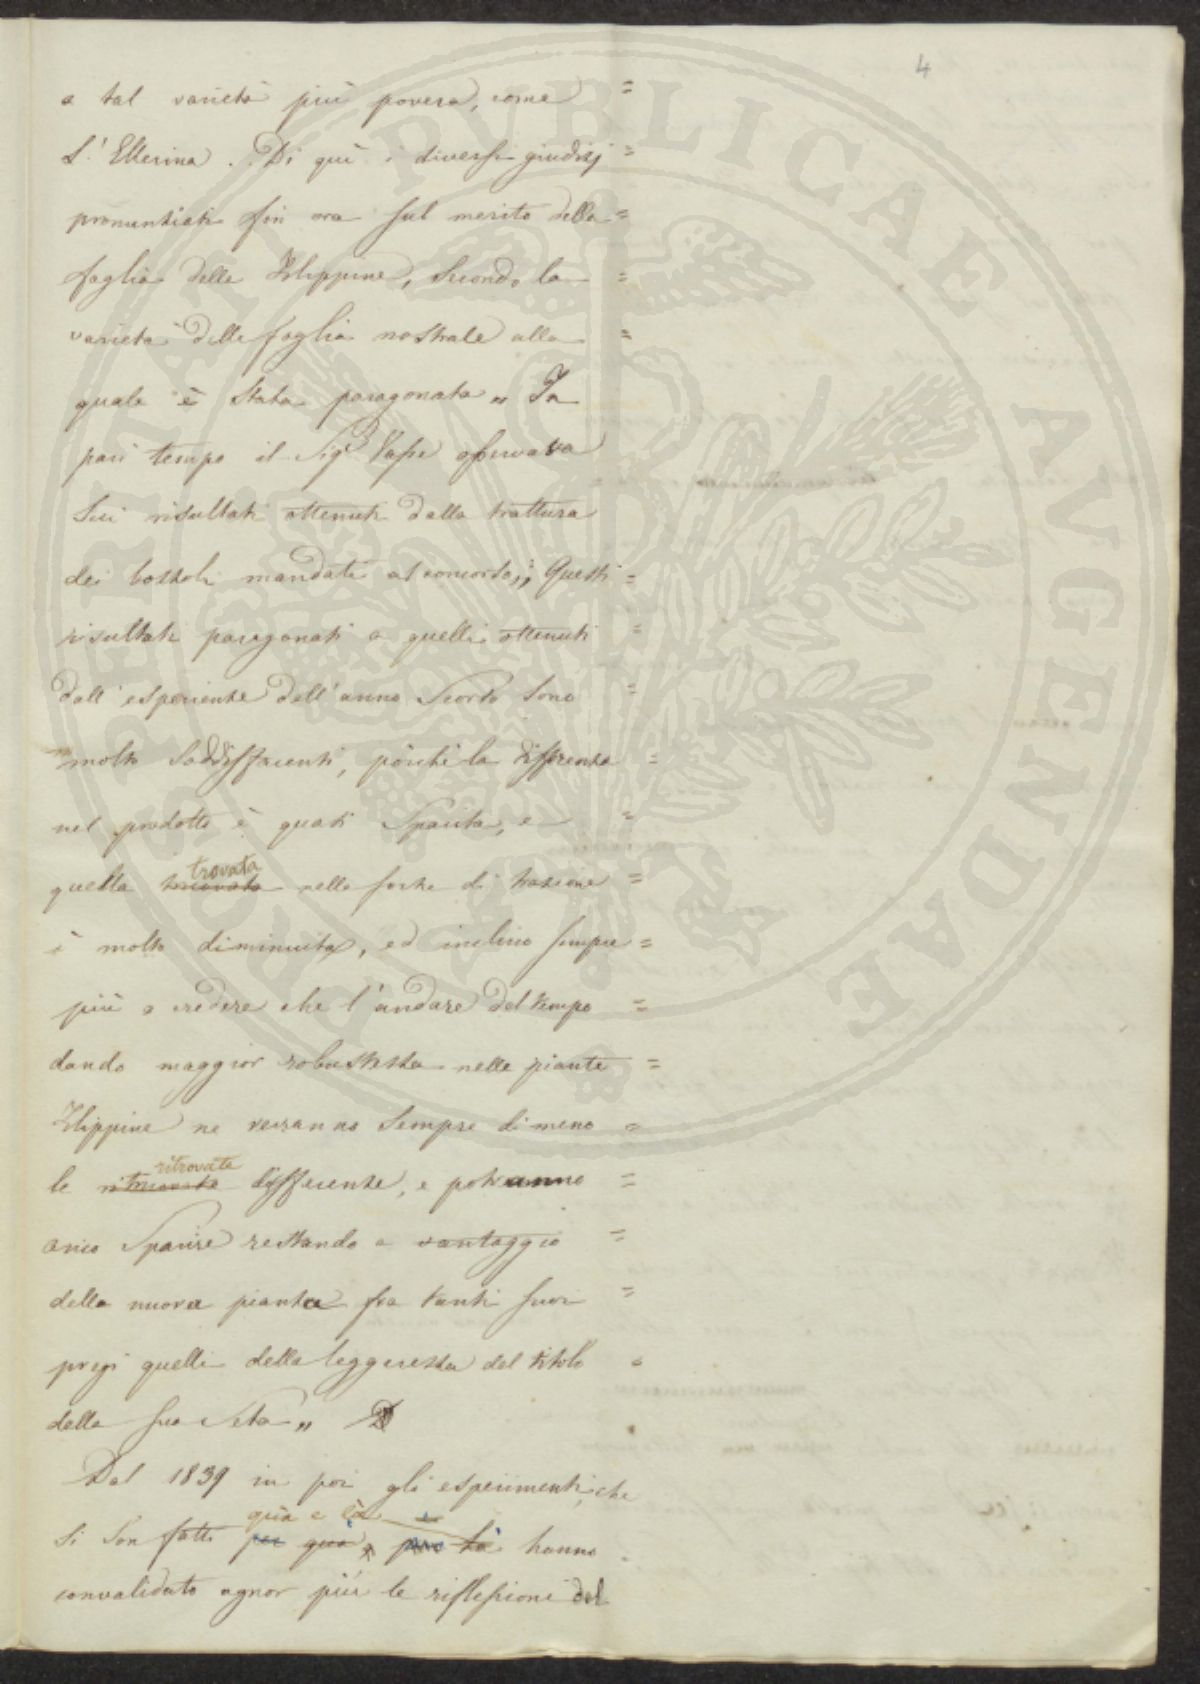 4
a tal varietà più povera, come =
L'Ellerina. Di quì i diversi giudizj =
pronunziati fin ora sul merito della =
foglia delle Filippine, secondo la =
varietà della foglia nostrale alla =
quale è stata paragonata „ In
pari tempo il Sig.r osservava
sui risultati ottenuti dalla trattura
dei bozzoli mandati al concorso; „ Questi =
risultati paragonati a quelli ottenuti =
dall'esperienze dell'anno scorso sono =
molto saddisfacenti, poichè la differenza =
nel prodotto è quasi sparita, e =
quella trovata nella forza di trazione =
è molto diminuita, ed inclino sempre =
più a credere che l'andare del tempo =
dando maggior robustezza nelle piante =
Filippine ne verranno sempre di meno =
le ritrovate differenze, e potranno =
anco sparire restando a vantaggio =
della nuova pianta fra tanti suoi =
pregi quelli della leggerezza del titolo =
della sua seta „ D
Dal 1839 in poi gli esperimenti, che
si son fatti quà e là per quà, per là hanno
convalidato ognor più le riflessioni del
PROSPERITATI PVBLICAE AVGENDAE